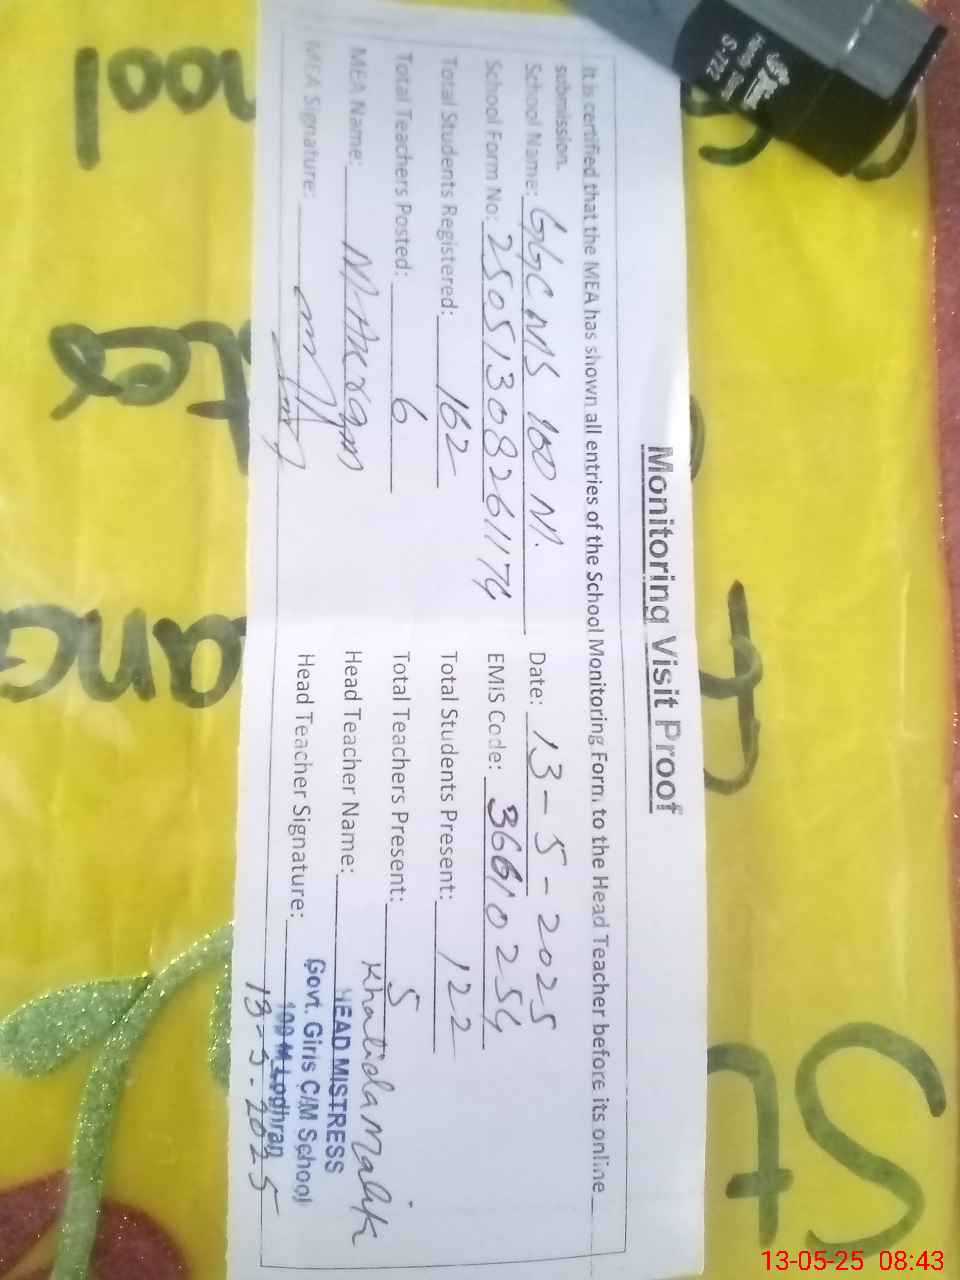 Monitoring Visit Proof
It is certified that the MEA has shown all entries of the School Monitoring Form to the Head Teacher before its online
submission.
School Name: GGCMS 100 M. Date: 13-5-2025
School Form No: 25051308261174 EMIS Code: 36610254
Total Students Registered: 162 Total Students Present: 122
Total Teachers Posted: 6 Total Teachers Present: 5
MEA Name: M. Akram Head Teacher Name: Khalida Malik
MEA Signature: Head Teacher Signature:
HEAD MISTRESS
Govt. Girls C/M School
100 M Lodhran
13-5-2025
S-712
13-05-25 08:43